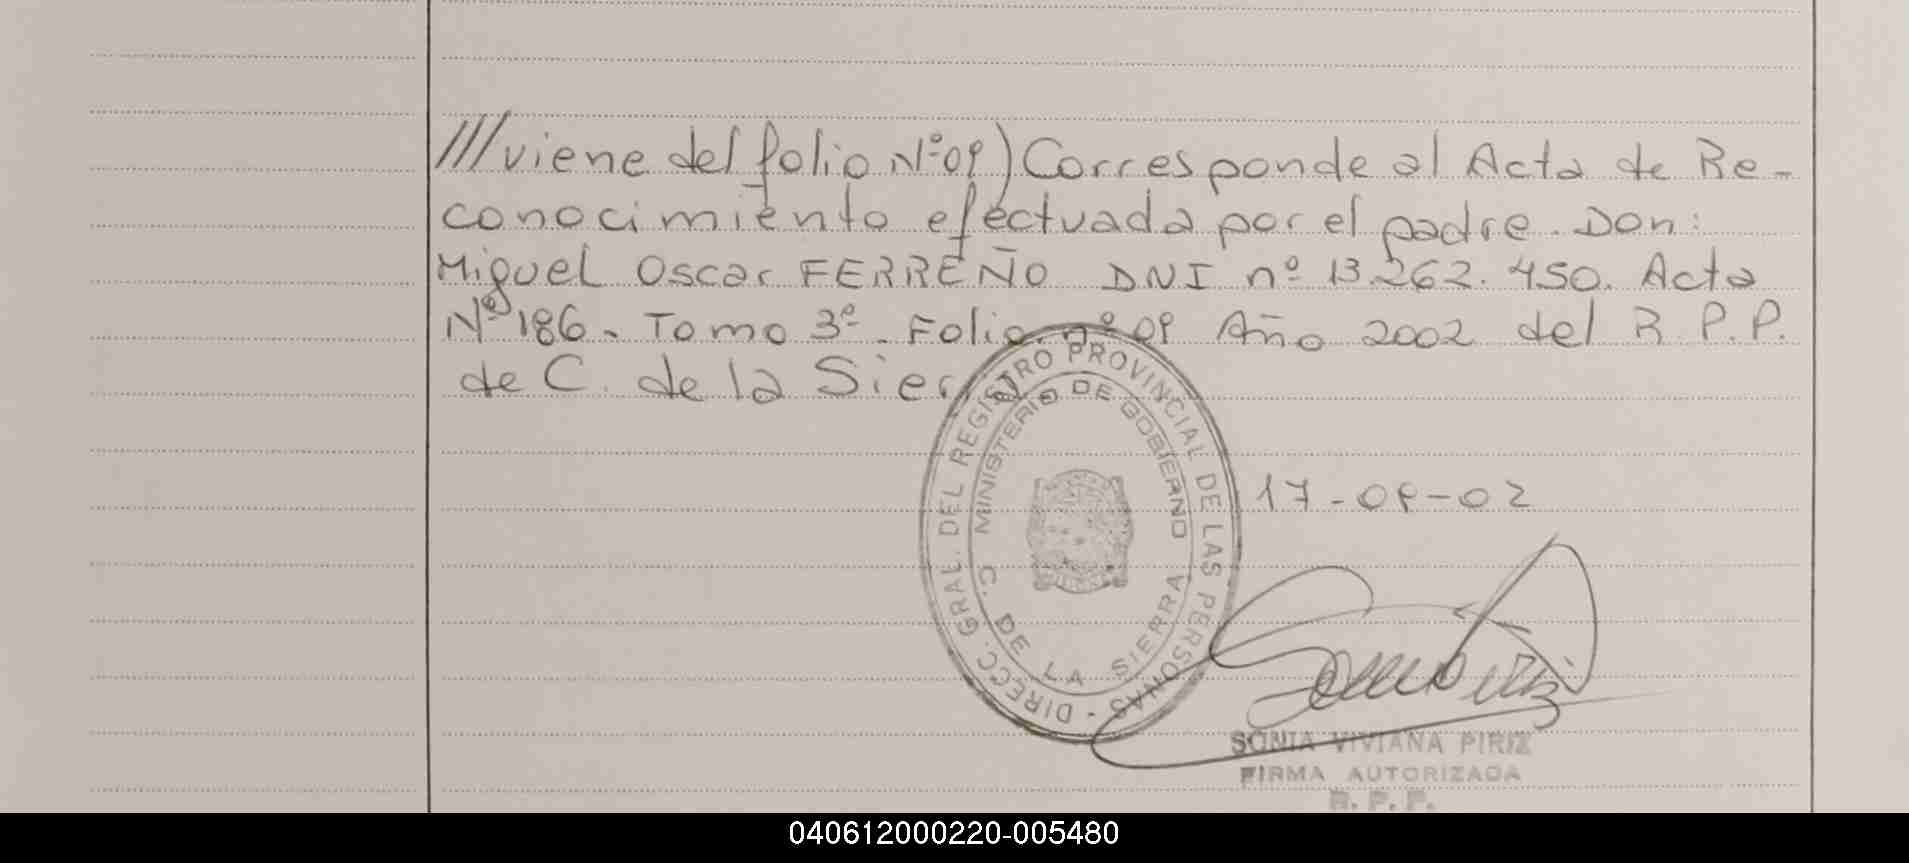 ///viene del folio Nº09) Corresponde al Acta de Re-
conocimiento efectuada por el padre. Don:
Miguel Oscar FERREÑO DNI nº 13.262.450. Acta
Nº 186. Tomo 3º. Folio nº 09 Año 2002 del R.P.P.
de C. de la Sierra
DIRECC. GRAL. DEL REGISTRO PROVINCIAL DE LAS PERSONAS -
MINISTERIO DE GOBIERNO
C. DE LA SIERRA
17-09-02
SONIA VIVIANA PIRIZ
FIRMA AUTORIZADA
R. P. P.
040612000220-005480